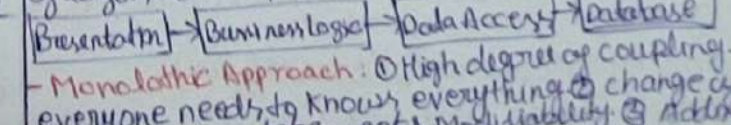 Presentatn → Bussiness Logic → Data Access → Database
- Monolothic Approach: ① High degree of coupling.
everyone needs to knows everything ② change